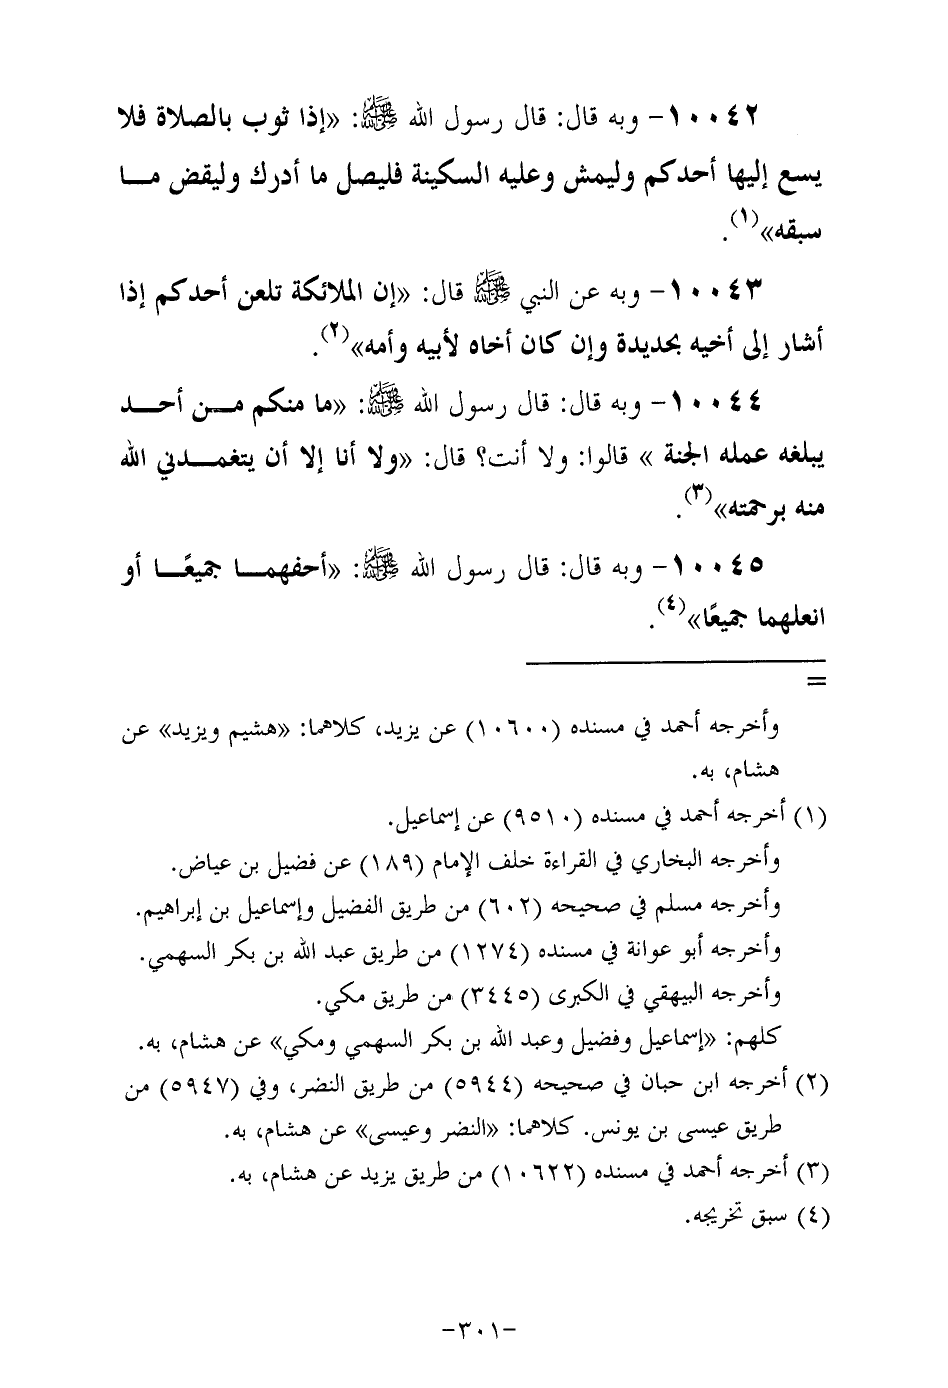 ١٠٠٤٢- وبه قال: قال رسول الله ﷺ: «إذا ثوب بالصلاة فلا
يسع إليها أحدكم وليمش وعليه السكينة فليصل ما أدرك وليقض مـــا
سبقه»(١).
١٠٠٤٣- وبه عن النبي ﷺ قال: «إن الملائكة تلعن أحدكم إذا
أشار إلى أخيه بحديدة وإن كان أخاه لأبيه وأمه»(٢).
١٠٠٤٤- وبه قال: قال رسول الله ﷺ: «ما منكم مـــن أحـــد
يبلغه عمله الجنة » قالوا: ولا أنت؟ قال: «ولا أنا إلا أن يتغمـــدني الله
منه برحمته»(٣).
١٠٠٤٥- وبه قال: قال رسول الله ﷺ: «أحفهمـــا جميعًـــا أو
انعلهما جميعًا»(٤).
=
وأخرجه أحمد في مسنده (١٠٦٠٠) عن يزيد، كلاهما: «هشيم ويزيد» عن
هشام، به.
(١) أخرجه أحمد في مسنده (٩٥١٠) عن إسماعيل.
وأخرجه البخاري في القراءة خلف الإمام (١٨٩) عن فضيل بن عياض.
وأخرجه مسلم في صحيحه (٦٠٢) من طريق الفضيل وإسماعيل بن إبراهيم.
وأخرجه أبو عوانة في مسنده (١٢٧٤) من طريق عبد الله بن بكر السهمي.
وأخرجه البيهقي في الكبرى (٣٤٤٥) من طريق مكي.
كلهم: «إسماعيل وفضيل وعبد الله بن بكر السهمي ومكي» عن هشام، به.
(٢) أخرجه ابن حبان في صحيحه (٥٩٤٤) من طريق النضر، وفي (٥٩٤٧) من
طريق عيسى بن يونس. كلاهما: «النضر وعيسى» عن هشام، به.
(٣) أخرجه أحمد في مسنده (١٠٦٢٢) من طريق يزيد عن هشام، به.
(٤) سبق تخريجه.
-٣٠١-